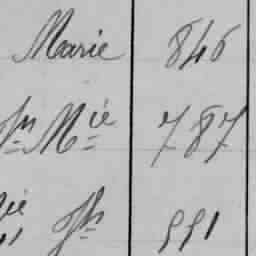 Marie 846
Jn Mie 787
551